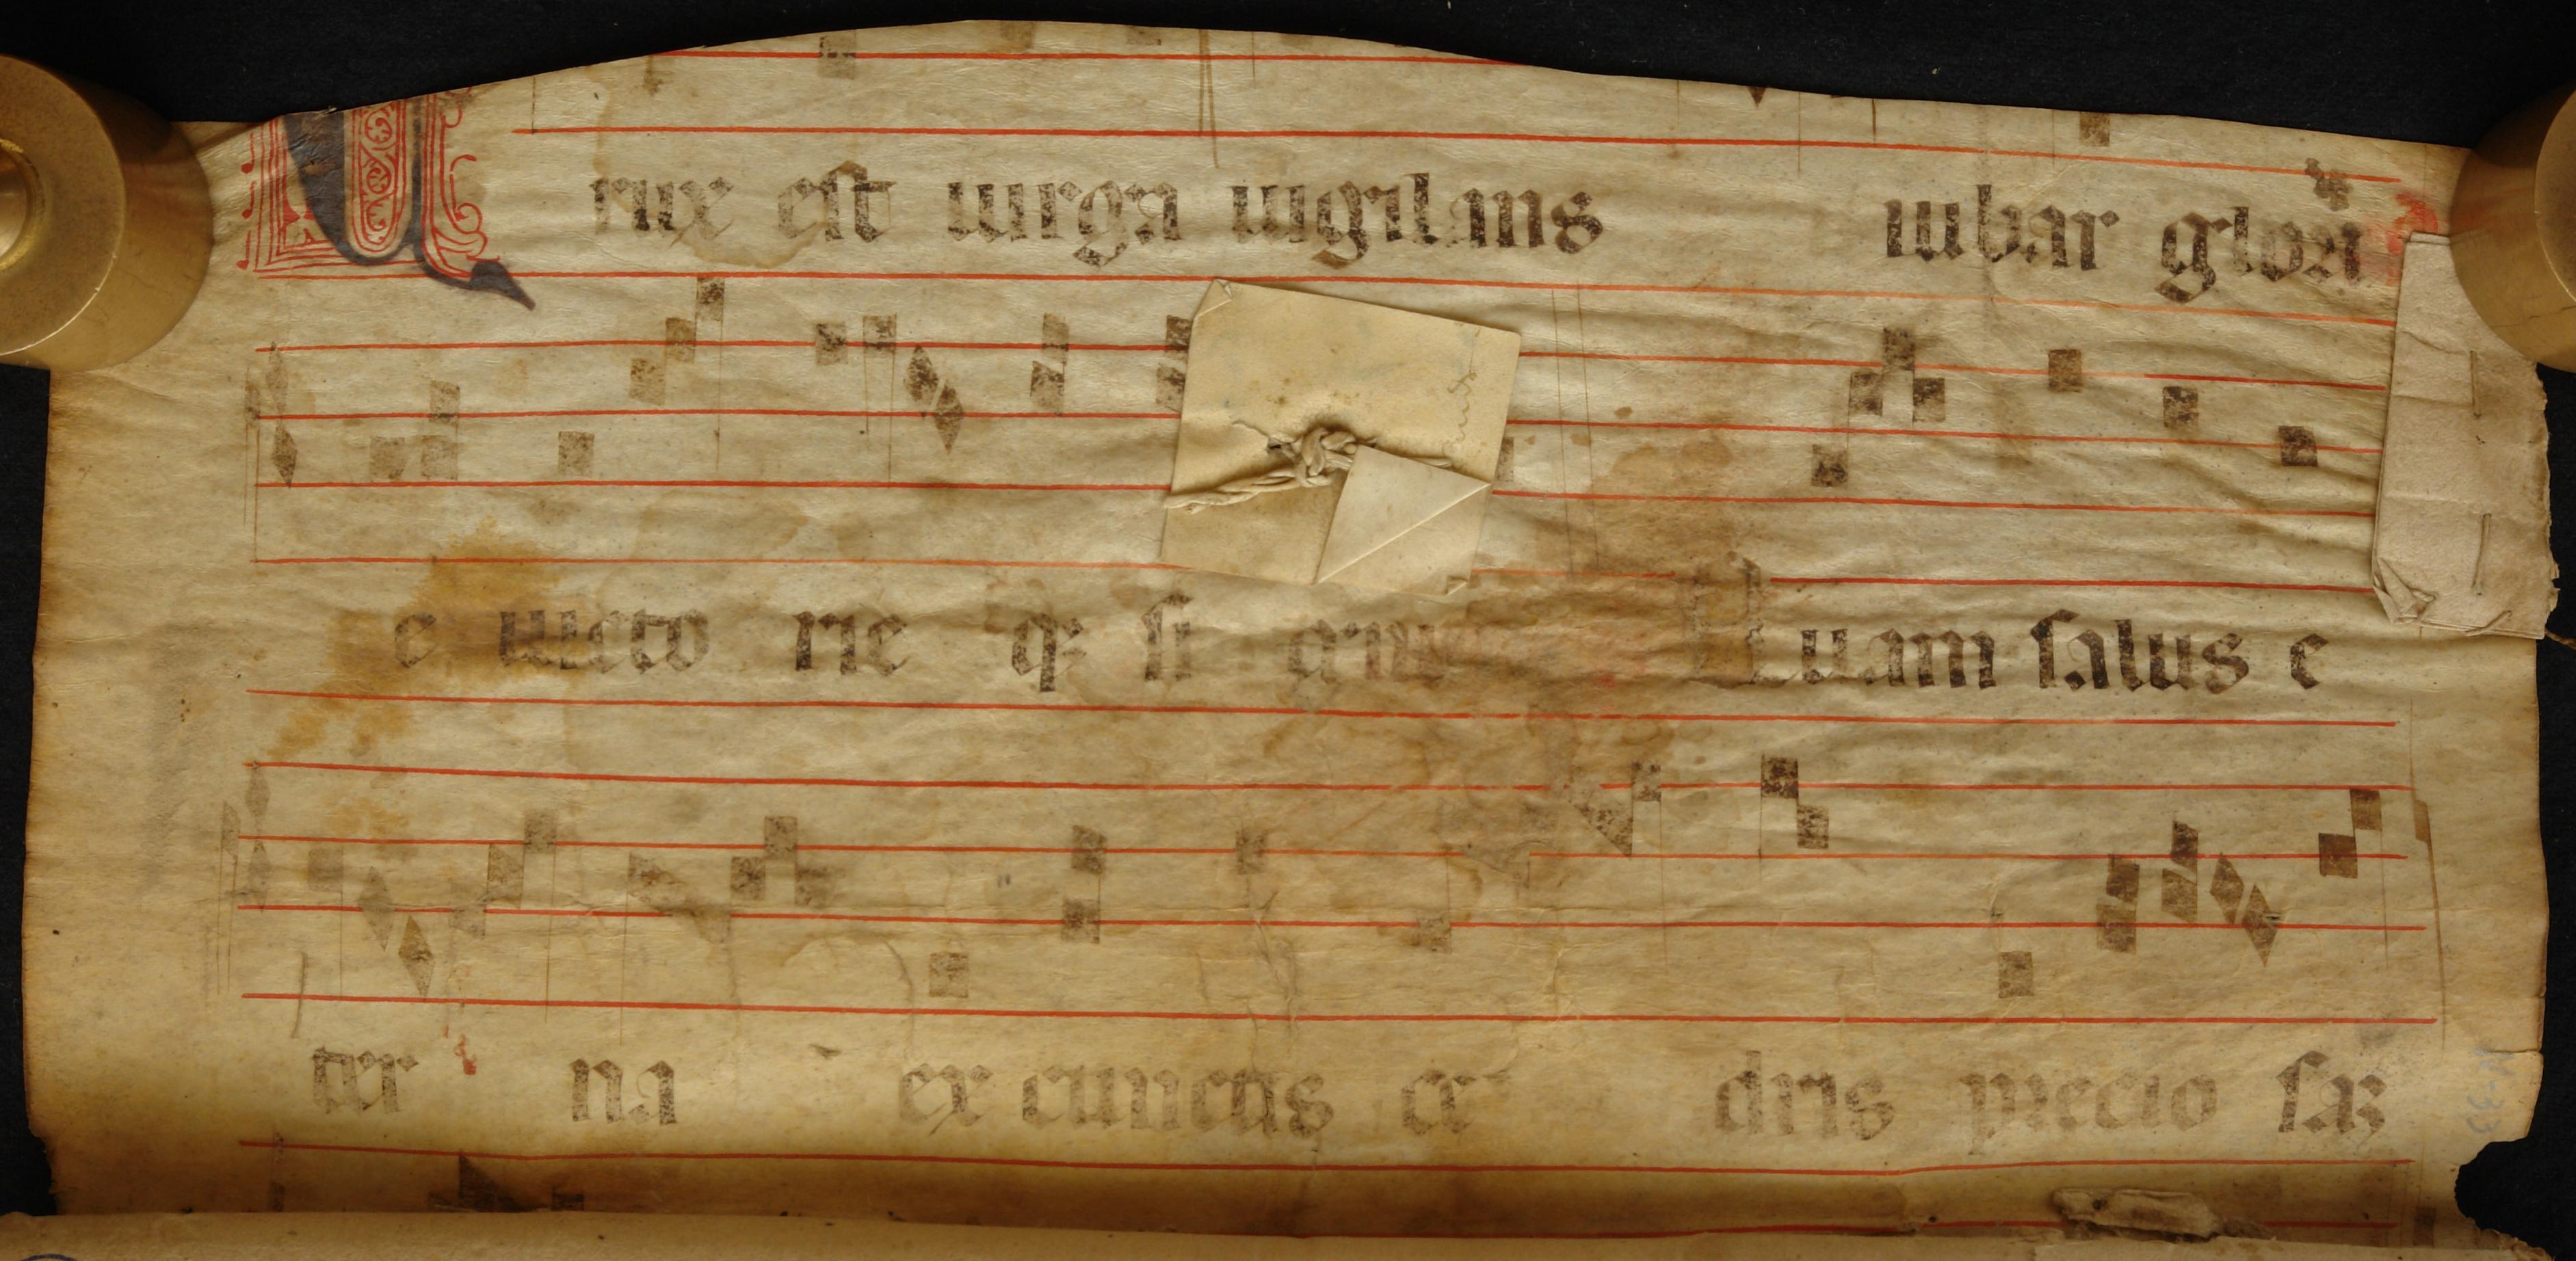 Crux est uirga uigilans iubar glori
e uicto rie qꝫ si gnu Quam salus e
ter na ex cunctis ce dris precio saꝝ